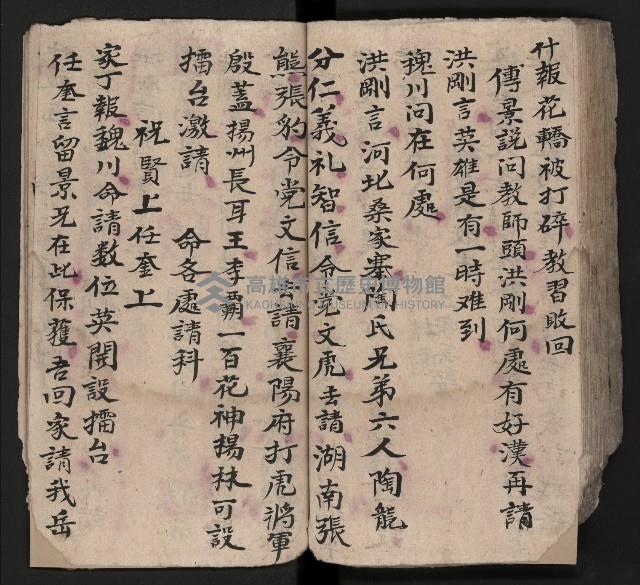 什報花轎被打碎教習敗回
傅景說問教師頭洪剛何處有好漢再請
洪剛言英雄是有一時难到
魏川问在何處
洪剛言河北桑家寨陶氏兄弟六人陶龍
分仁義礼智信令党文虎去請湖南張
熊張豹令党文信去請襄陽府打虎將軍
殷蓋揚州長耳王李霸一百花神揚林可設
擂台激請　命各處請科
祝賢上任奎上
家丁報魏川命請数位英開設擂台
任奎言留景兄在此保獲吾回家請我岳
高雄市立歷史博物館
KAOHSIUNG MUSEUM OF HISTORY